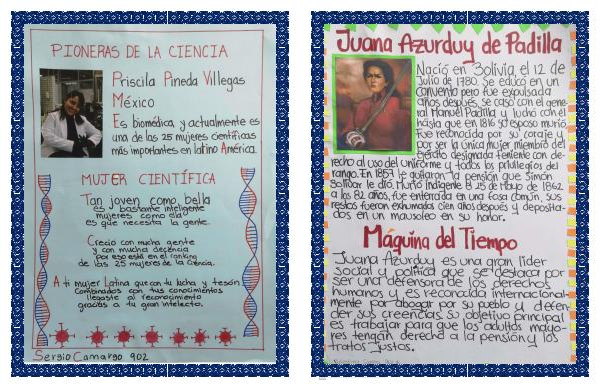 PIONERAS DE LA CIENCIA
Priscila Pineda Villegas
México
Es biomédica, y actualmente es
una de las 25 mujeres científicas
más importantes en latino América.
MUJER CIENTÍFICA
Tan joven como bella
es bastante inteligente
mujeres como ella
es que necesita la gente.
Creció con mucha gente
y con mucha decencia
por eso está en el ranking
de las 25 mujeres de la Ciencia.
A ti mujer Latina que con tu lucha y tesón
combinados con tus conocimientos
llegaste al reconocimiento
gracias a tu gran intelecto.
Sergio Camargo 902
Juana Azurduy de Padilla
Nació en Bolivia, el 12 de
Julio de 1780. Se educó en un
convento pero fue expulsada
años después, se caso con el gene-
ral Manuel Padilla y luchó con el
hasta que en 1816 su esposo murió
Fue reconocida por su coraje y
por ser la única mujer miembro del
Ejército designada teniente con de-
recho al uso del uniforme y todos los privilegios del
rango. En 1857 le quitaron la pensión que Simón
Bolívar le dió. Murió indigente el 25 de Mayo de 1862
a los 82 años, fue enterrada en una fosa común, sus
restos fueron exhumados cien años después y deposita-
dos en un mausoleo en su honor.
Máquina del Tiempo
Juana Azurduy es una gran líder
social y política que se destaca por
ser una defensora de los derechos
humanos y es reconocida internacional-
mente por abogar por su pueblo y defen-
der sus creencias. Su objetivo principal
es trabajar para que los adultos mayo-
res tengan derecho a la pensión y los
tratos justos.